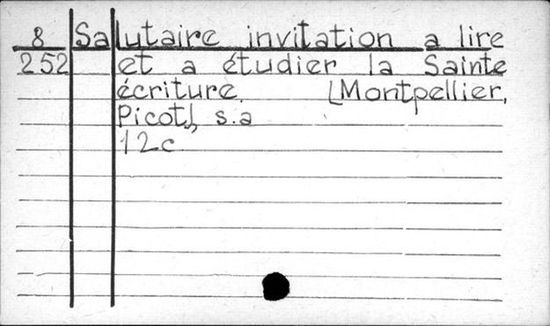 8 Salutaire invitation a lire
252 et a étudier la Sainte
écriture. [Montpellier,
Picot], s.a
12c